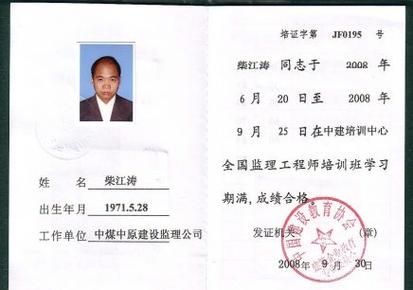 姓名 柴江涛
出生年月 1971.5.28
工作单位 中煤中原建设监理公司
培证字第 JF0195 号
柴江涛 同志于 2008 年
6 月 20 日至 2008 年
9 月 25 日在中建培训中心
全国监理工程师培训班学习
期满,成绩合格。
发证机关 (章)
2008 年 9 月 30 日
中国建设教育协会